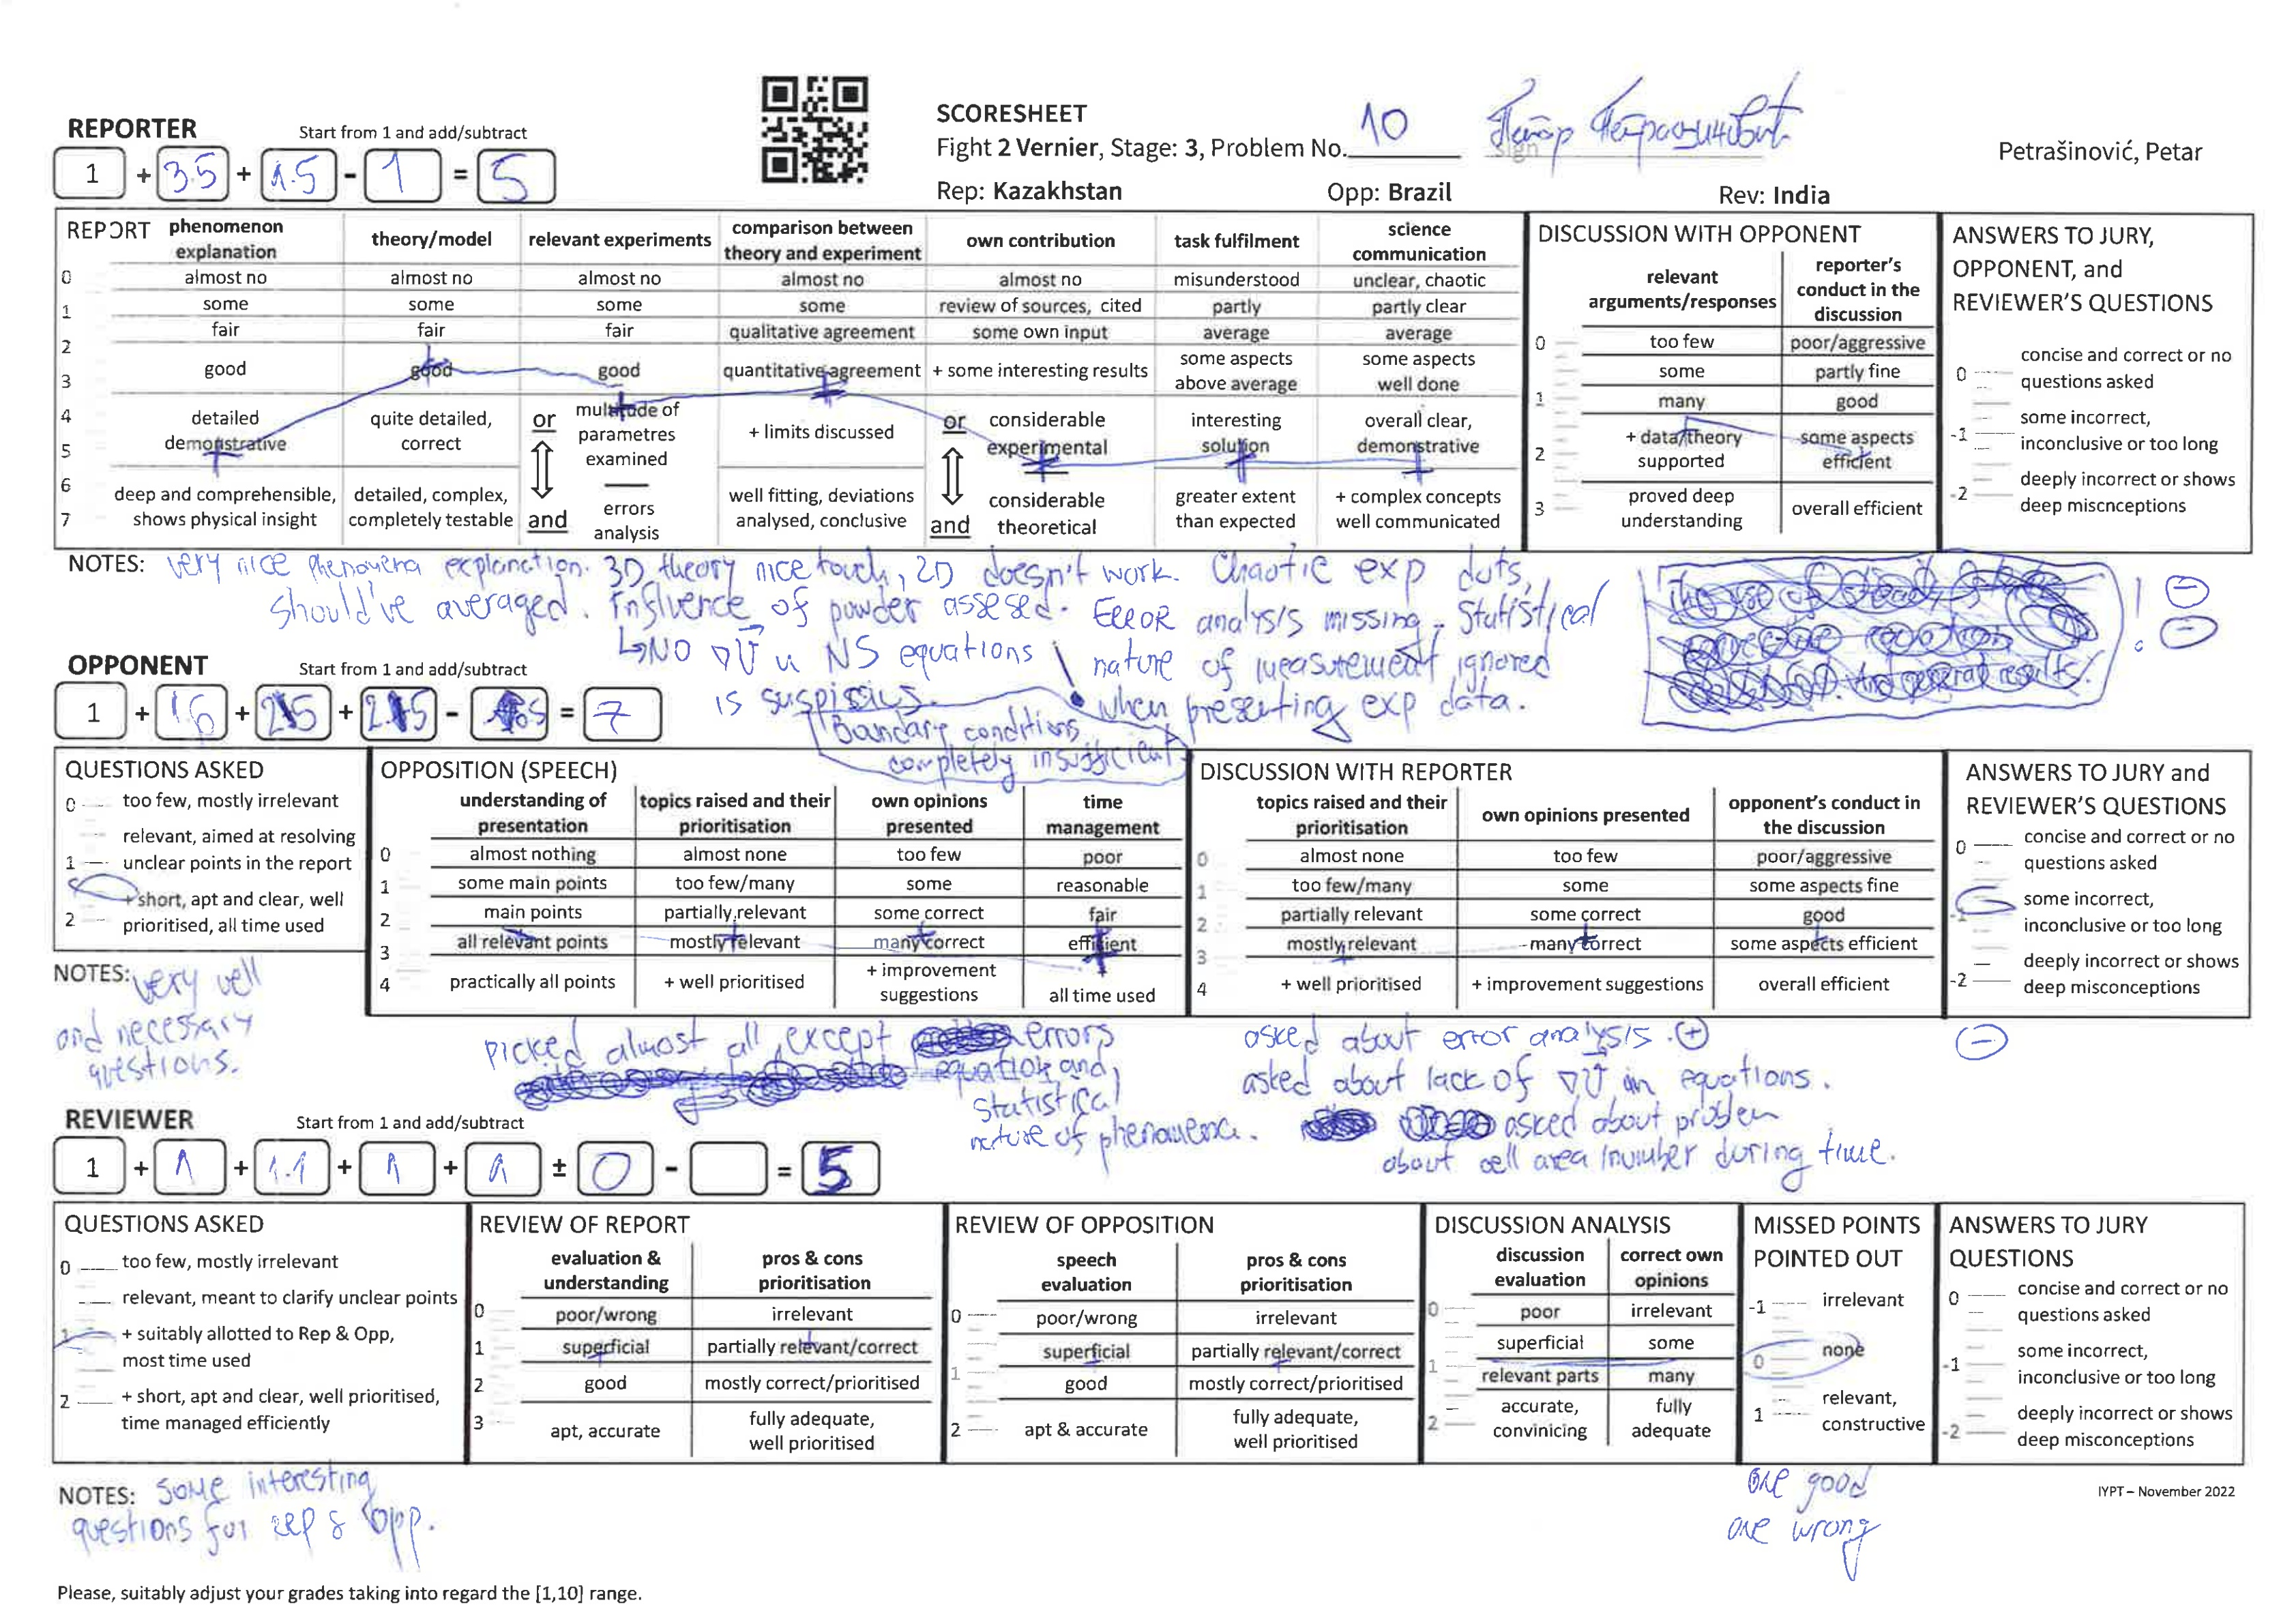 REPORTER Start from 1 and add/subtract
1 + 3.5 + 1.5 - 1 = 5
SCORESHEET
Fight 2 Vernier, Stage: 3, Problem No. 10
sign
Petrašinović, Petar
Rep: Kazakhstan Opp: Brazil Rev: India
REPORT
phenomenon explanation theory/model relevant experiments comparison between theory and experiment own contribution task fulfilment science communication
0 almost no almost no almost no almost no almost no misunderstood unclear, chaotic
1 some some some some review of sources, cited partly partly clear
fair fair fair qualitative agreement some own input average average
2
3 good good good quantitative agreement + some interesting results some aspects above average some aspects well done
4
5 detailed demonstrative quite detailed, correct or multitude of parametres examined + limits discussed or considerable experimental interesting solution overall clear, demonstrative
6
7 deep and comprehensible, shows physical insight detailed, complex, completely testable and errors analysis well fitting, deviations analysed, conclusive and considerable theoretical greater extent than expected + complex concepts well communicated
DISCUSSION WITH OPPONENT
relevant arguments/responses reporter's conduct in the discussion
0 too few poor/aggressive
some partly fine
1 many good
2 + data/theory supported some aspects efficient
3 proved deep understanding overall efficient
ANSWERS TO JURY, OPPONENT, and REVIEWER'S QUESTIONS
0 concise and correct or no questions asked
-1 some incorrect, inconclusive or too long
-2 deeply incorrect or shows deep miscnceptions
NOTES: very nice phenomena explanation. 3D theory nice touch, 2D doesn't work. Chaotic exp dots,
should've averaged. Influence of powder assesed. ERROR analysis missing. Statistical
↳NO ∇U u NS equations nature of measurement ignored
is suspisius. when presenting exp data.
Boundary conditions
completely insufficient
! - -
OPPONENT Start from 1 and add/subtract
1 + 1.6 + + - = 7
QUESTIONS ASKED
0 too few, mostly irrelevant
relevant, aimed at resolving
1 unclear points in the report
+ short, apt and clear, well
2 prioritised, all time used
OPPOSITION (SPEECH)
understanding of presentation topics raised and their prioritisation own opinions presented time management
0 almost nothing almost none too few poor
1 some main points too few/many some reasonable
2 main points partially relevant some correct fair
3 all relevant points mostly relevant many correct efficient
4 practically all points + well prioritised + improvement suggestions all time used
DISCUSSION WITH REPORTER
topics raised and their prioritisation own opinions presented opponent's conduct in the discussion
0 almost none too few poor/aggressive
1 too few/many some some aspects fine
2 partially relevant some correct good
3 mostly relevant many correct some aspects efficient
4 + well prioritised + improvement suggestions overall efficient
ANSWERS TO JURY and REVIEWER'S QUESTIONS
0 concise and correct or no questions asked
-1 some incorrect, inconclusive or too long
-2 deeply incorrect or shows deep misconceptions
NOTES: very well
and necessary
questions.
picked almost all, except errors
equation and
statistical
nature of phenomena.
asked about error analysis. +
asked about lack of ∇U in equations.
asked about problem
about cell area/number during time.
-
REVIEWER Start from 1 and add/subtract
1 + 1 + 1.1 + 1 + 1 ± 0 - = 5
QUESTIONS ASKED
0 too few, mostly irrelevant
relevant, meant to clarify unclear points
1 + suitably allotted to Rep & Opp,
most time used
2 + short, apt and clear, well prioritised,
time managed efficiently
REVIEW OF REPORT
evaluation & understanding pros & cons prioritisation
0 poor/wrong irrelevant
1 superficial partially relevant/correct
2 good mostly correct/prioritised
3 apt, accurate fully adequate, well prioritised
REVIEW OF OPPOSITION
speech evaluation pros & cons prioritisation
0 poor/wrong irrelevant
superficial partially relevant/correct
1 good mostly correct/prioritised
2 apt & accurate fully adequate, well prioritised
DISCUSSION ANALYSIS
discussion evaluation correct own opinions
0 poor irrelevant
superficial some
1 relevant parts many
2 accurate, convinicing fully adequate
MISSED POINTS POINTED OUT
-1 irrelevant
0 none
1 relevant, constructive
ANSWERS TO JURY QUESTIONS
0 concise and correct or no questions asked
-1 some incorrect, inconclusive or too long
-2 deeply incorrect or shows deep misconceptions
NOTES: some interesting
questions for rep & opp.
one good
one wrong
IYPT – November 2022
Please, suitably adjust your grades taking into regard the [1,10] range.